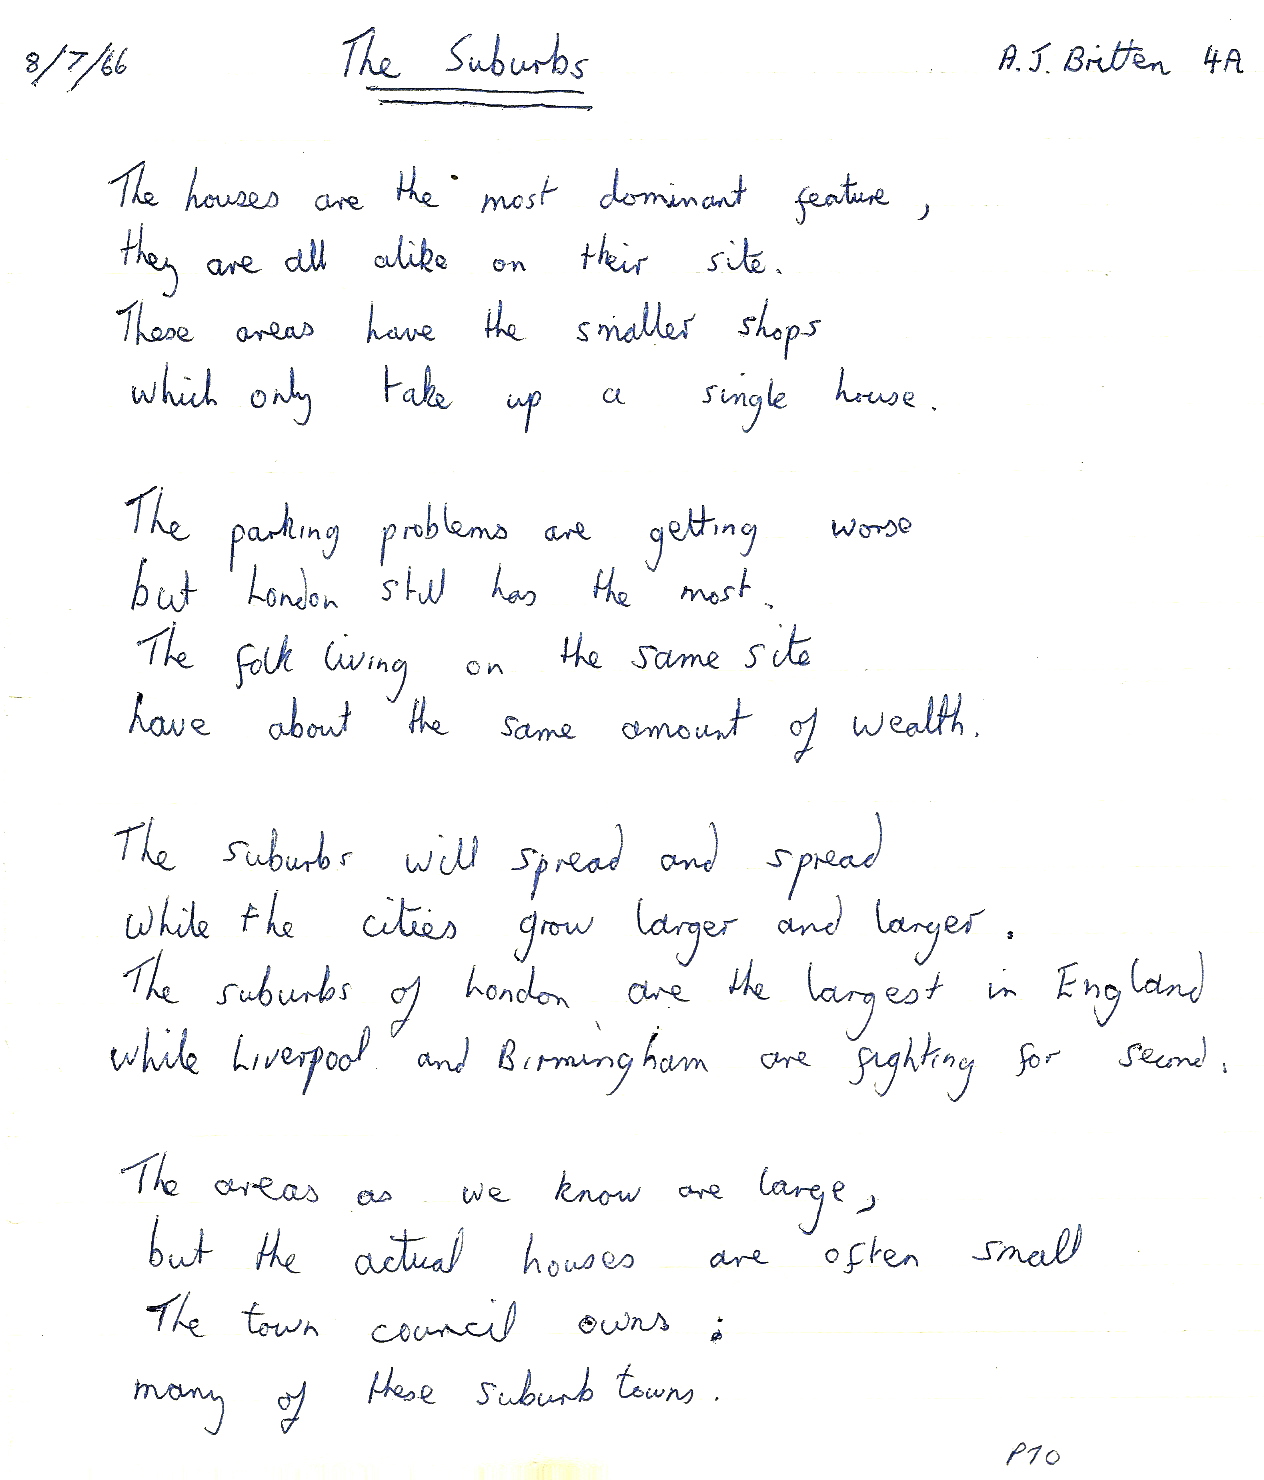 8/7/66 The Suburbs A.J. Britten 4A
The houses are the most dominant feature,
they are all alike on their site.
These areas have the smaller shops
which only take up a single house.
The parking problems are getting worse
but London still has the most.
The folk living on the same site
have about the same amount of wealth.
The suburbs will spread and spread
while the cities grow larger and larger.
The suburbs of London are the largest in England
while Liverpool and Birmingham are fighting for second.
The areas as we know are large,
but the actual houses are often small
The town council owns :
many of these suburb towns.
PTO